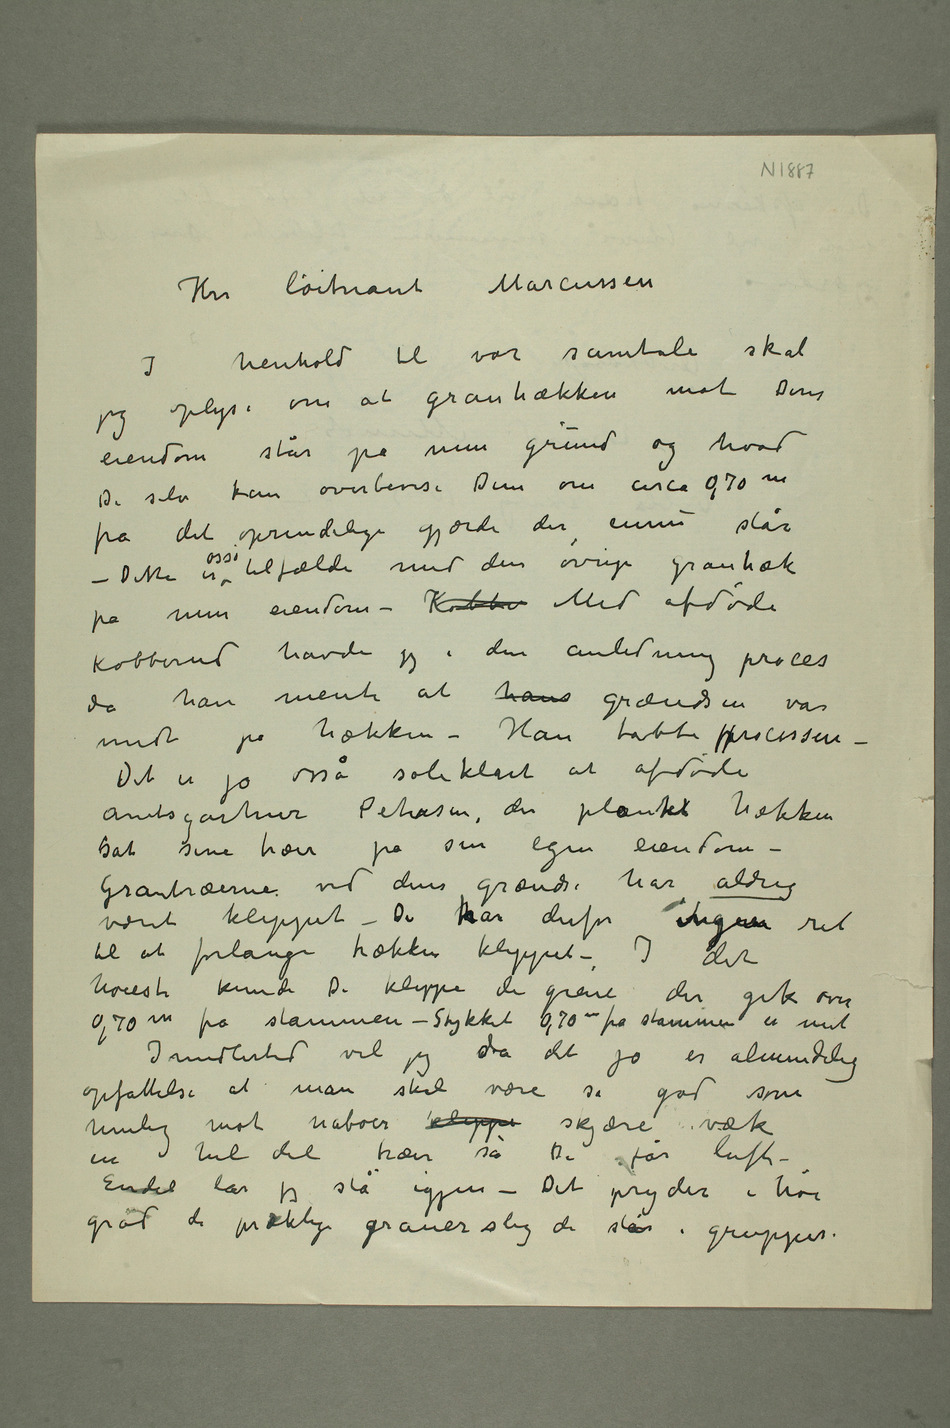 N1887
Hrr löitnant Marcussen
I henhold til vor samtale skal
jeg oplyse om at granhækken mot Deres
eiendom står på min grund og hvad
De selv kan overbevise Dem om circa 0,70 m
fra det oprindelige gjærde der ennu står
– Dette er også tilfælde med den øvrige granhæk
på min eiendom – Kobbe Med afdøde
Kobberud havde jeg i den anledning proces
da han mente at hans grændsen var
midt på hækken – Han tabte processen –
Det er jo osså soleklart at afdøde
amtsgartner Petersen, der plantet hækken
sat sine træer på sin egen eiendom –
Grantræerne ved dens grændse har aldrig
været klippet – De har derfor ingen ret
til at forlange hækken klippet – I det
høieste kunde De klippe de grene der gik over
0,70 m fra stammen – Stykket 0,70 m fra stammen er mit
Imidlertid vil jeg da det jo er almindelig
opfattelse at man skal være så god som
mulig mot naboer klippe skjære væk
en hel del træer så De får luft –
Endel lar jeg stå igjen – Det pryder i høi
grad de præktige graner slig de står i grupper.